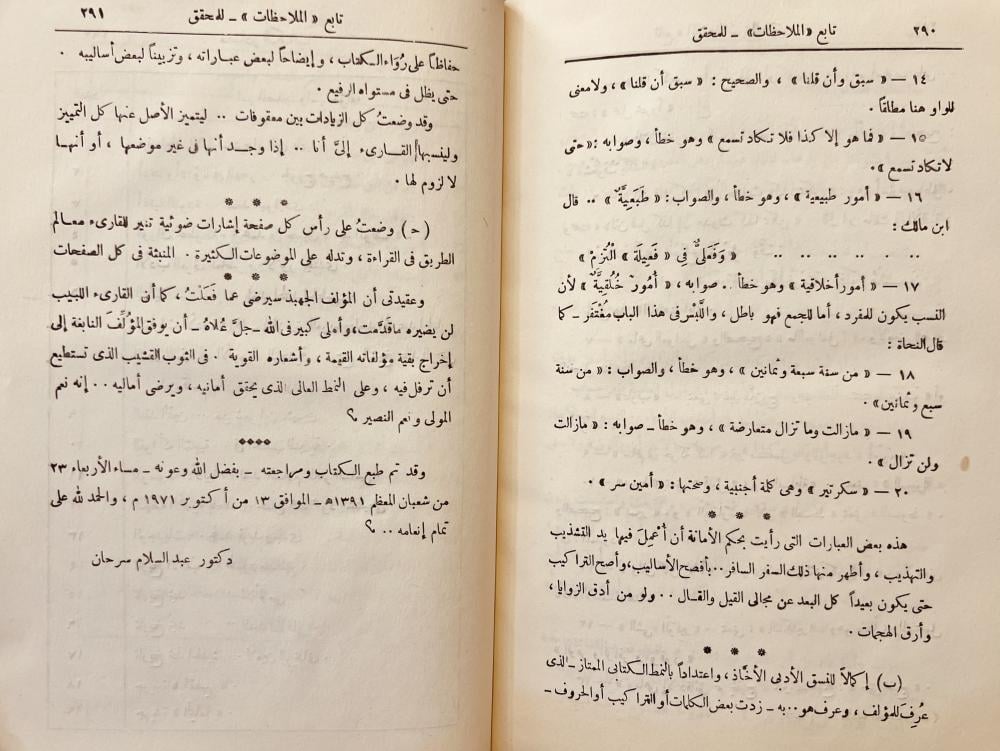 ٢٩٠ تابع «الملاحظات» – للمحقق
١٤ – « سبق وأن قلنا » ، والصحيح : « سبق أن قلنا » ، ولا معنى
للواو هنا مطلقاً .
١٥ – « فما هو إلا كذا فلا تكاد تسمع » وهو خطأ ، وصوابه : « حتى
لا تكاد تسمع » .
١٦ – « أمور طبيعية » ، وهو خطأ ، والصواب : « طَبَعِيَّةٌ » .. قال
ابن مالك :
.. .. .. .. .. « وَفَعَلِىٌّ فِى « فَعِيلَة » الْتُزِمْ »
١٧ – « أمور أخلاقية » وهو خطأ .. صوابه ، « أُمُورٌ خُلُقِيَّةٌ » لأن
النسب يكون للمفرد ، أما للجمع فهو باطل ، واللَّبْس فى هذا الباب مُغْتَفَر – كما
قال النحاة :
١٨ – « من سنة سبعة وثمانين » ، وهو خطأ ، والصواب : « من سنة
سبع وثمانين » .
١٩ – « مازالت وما تزال متعارضة » ، وهو خطأ – صوابه : « مازالت
ولن تزال » .
٢٠ – « سكرتير » وهى كلمة أجنبية ، وصحتها : « أمين سر » .
* * *
هذه بعض العبارات التى رأيت بحكم الأمانة أن أُعْمِلَ فيها يد التشذيب
والتهذيب ، وأظهر منها ذلك السفر السافر .. بأفصح الأساليب ، وأصح التراكيب
حتى يكون بعيداً كل البعد عن مجالى القيل والقال .. ولو من أدق الزوايا ،
وأرق الهجمات .
* * *
(ب) إكمالاً للنسق الأدبى الأخّاذ ، واعتداداً بالنمط الكتابى الممتاز – الذى
عُرِفَ للمؤلف ، وعرف هو .. به – زدت بعض الكلمات أو التراكيب أو الحروف –
تابع « الملاحظات » – للمحقق ٢٩١
حفاظاً على رُوَاء الكتاب ، وإيضاحاً لبعض عباراته ، وتزييناً لبعض أساليبه .
حتى يظل فى مستواه الرفيع .
وقد وضعتُ كل الزيادات بين معقوفات .. ليتميز الأصل عنها كل التمييز
ولينسبها القارىء إلىَّ أنا .. إذا وجد أنها فى غير موضعها ، أو أنها
لا لزوم لها .
* * *
(حـ) وضعتُ على رأس كل صفحة إشارات ضوئية تنير للقارىء معالم
الطريق فى القراءة ، وتدله على الموضوعات الكثيرة . المنبثة فى كل الصفحات
* * *
وعقيدتى أن المؤلف الجهبذ سيرضى عما فَعَلْتُ ، كما أن القارىء اللبيب
لن يضيره ما قَدَّمت ، وأملى كبير فى الله – جلَّ عُلاهُ – أن يوفق المؤلِّفَ النابغة إلى
إخراج بقية مؤلفاته القيمة ، وأشعاره القوية . فى الثوب القشيب الذى تستطيع
أن ترفل فيه ، وعلى النمط العالى الذى يحقق أمانيه ، ويرضى أماليه .. إنه نعم
المولى ونعم النصير ؟
****
وقد تم طبع الكتاب ومراجعته – بفضل الله وعونه – مساء الأربعاء ٢٣
من شعبان المعظم ١٣٩١هـ – الموافق ١٣ من أكتوبر ١٩٧١ م ، والحمد لله على
تمام إنعامه .. ؟
دكتور عبد السلام سرحان